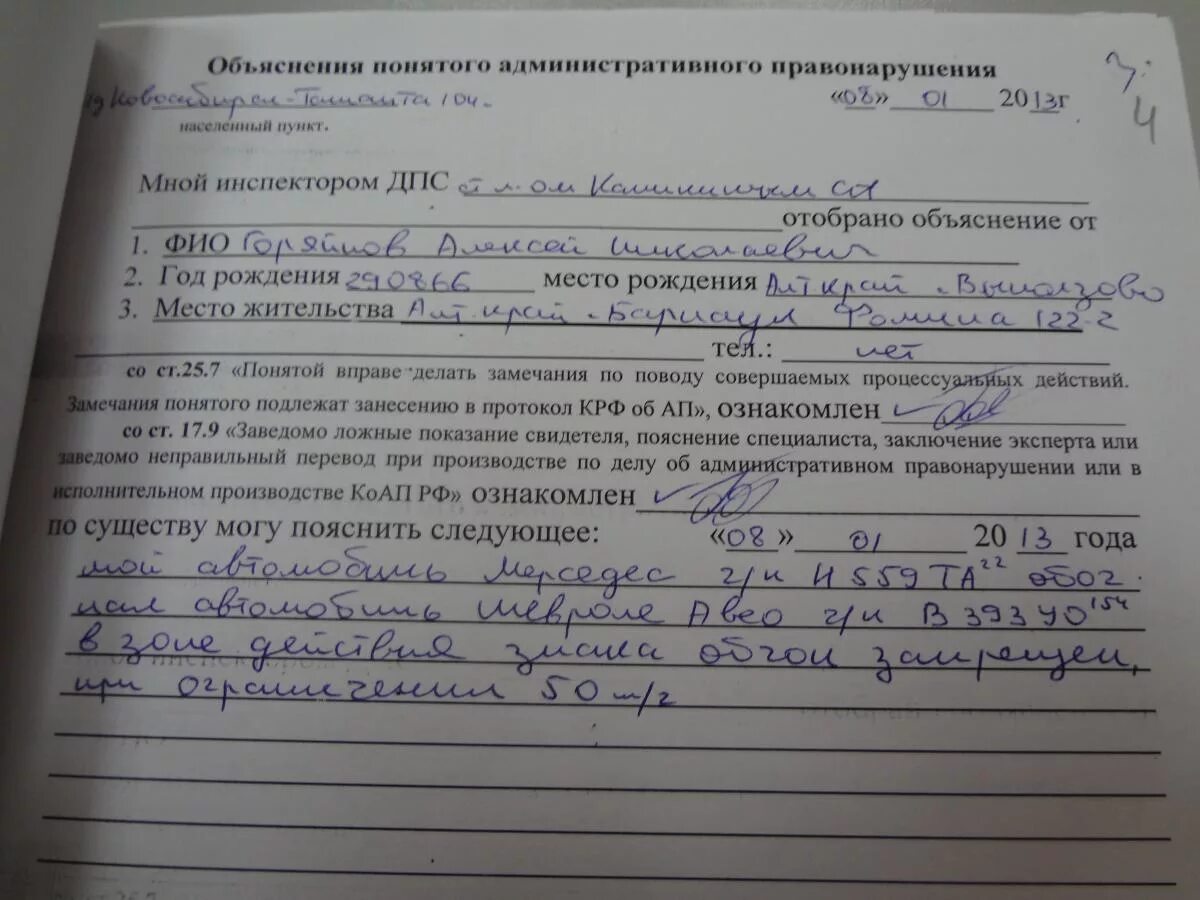 Объяснения понятого административного правонарушения
а/д Новосибирск-Ташанта 104. «08» 01 2013г
населенный пункт.
4
Мной инспектором ДПС
отобрано объяснение от
1. ФИО Горяйнов Алексей Николаевич
2. Год рождения 290866 место рождения Алт край
3. Место жительства Алт. край г. Барнаул Фомина 122-2
тел.: нет
со ст.25.7 «Понятой вправе делать замечания по поводу совершаемых процессуальных действий.
Замечания понятого подлежат занесению в протокол КРФ об АП», ознакомлен
со ст. 17.9 «Заведомо ложные показание свидетеля, пояснение специалиста, заключение эксперта или
заведомо неправильный перевод при производстве по делу об административном правонарушении или в
исполнительном производстве КоАП РФ» ознакомлен
по существу могу пояснить следующее: «08» 01 2013 года
мой автомобиль Мерседес г/н Н 559 ТА 22 обог
нал автомобиль Шевроле Авео г/н
в зоне действия знака обгон запрещен,
при ограничении 50